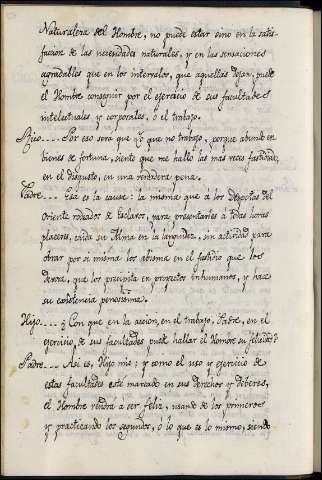 Naturaleza del Hombre, no puede estar sino en la satis-
facion de las necesidades naturales, y en las sensaciones
agradables que en los intervalos, que aquellas dejan, puede
el Hombre conseguir por el exercicio de sus facultades
intelectuales y corporales, ó el trabajo.
Hijo.... Por eso sera que yo que no trabajo, porque abundo en
bienes de fortuna, siento que me hallo las mas veces fastidiado,
en el disgusto, en una verdadera pena.
Padre... Esa es la causa: la misma que à los Déspotas del
Oriente rodeados de Esclavos, para presentarles à todas horas
placeres, caida su Alma en la languidez, sin actividad para
obrar por si misma los abisma en el fastidio que los
devora, que los precipita en proyectos inhumanos, y hace
su existencia penosissima.
Hijo.... ¿Con que en la accion, en el trabajo, Padre, en el
exercicio de sus facultades puede hallar el Hombre su felicidad?
Padre... Asi es, Hijo mio; y como el uso y exercicio de
estas facultades esté marcado en sus derechos y deberes,
el Hombre vendrá à ser feliz, usando de los primeros
y practicando los segundos, ó lo que es lo mismo, siendo